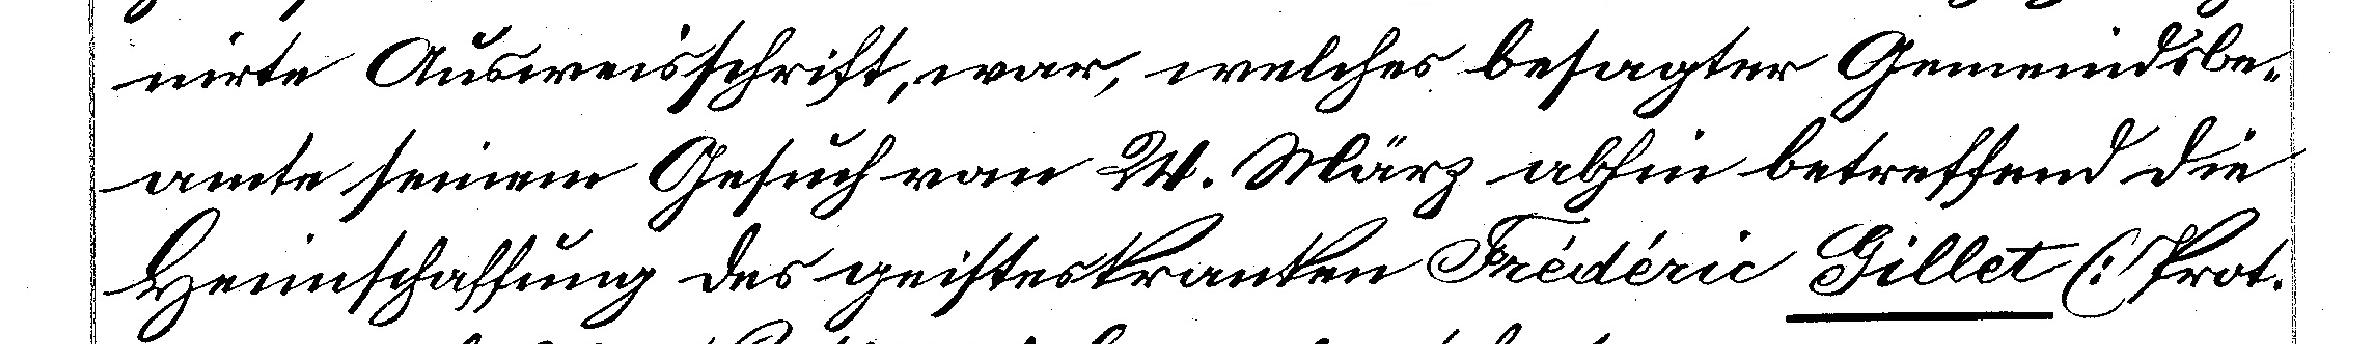 nirte Ausweisschrift, war, welches besagter Gemeindsbe-
amte seinem Gesuch vom 24. März abhin betreffend die
Heimschaffung des geisteskranken Frédéric Gillet (: Prot.